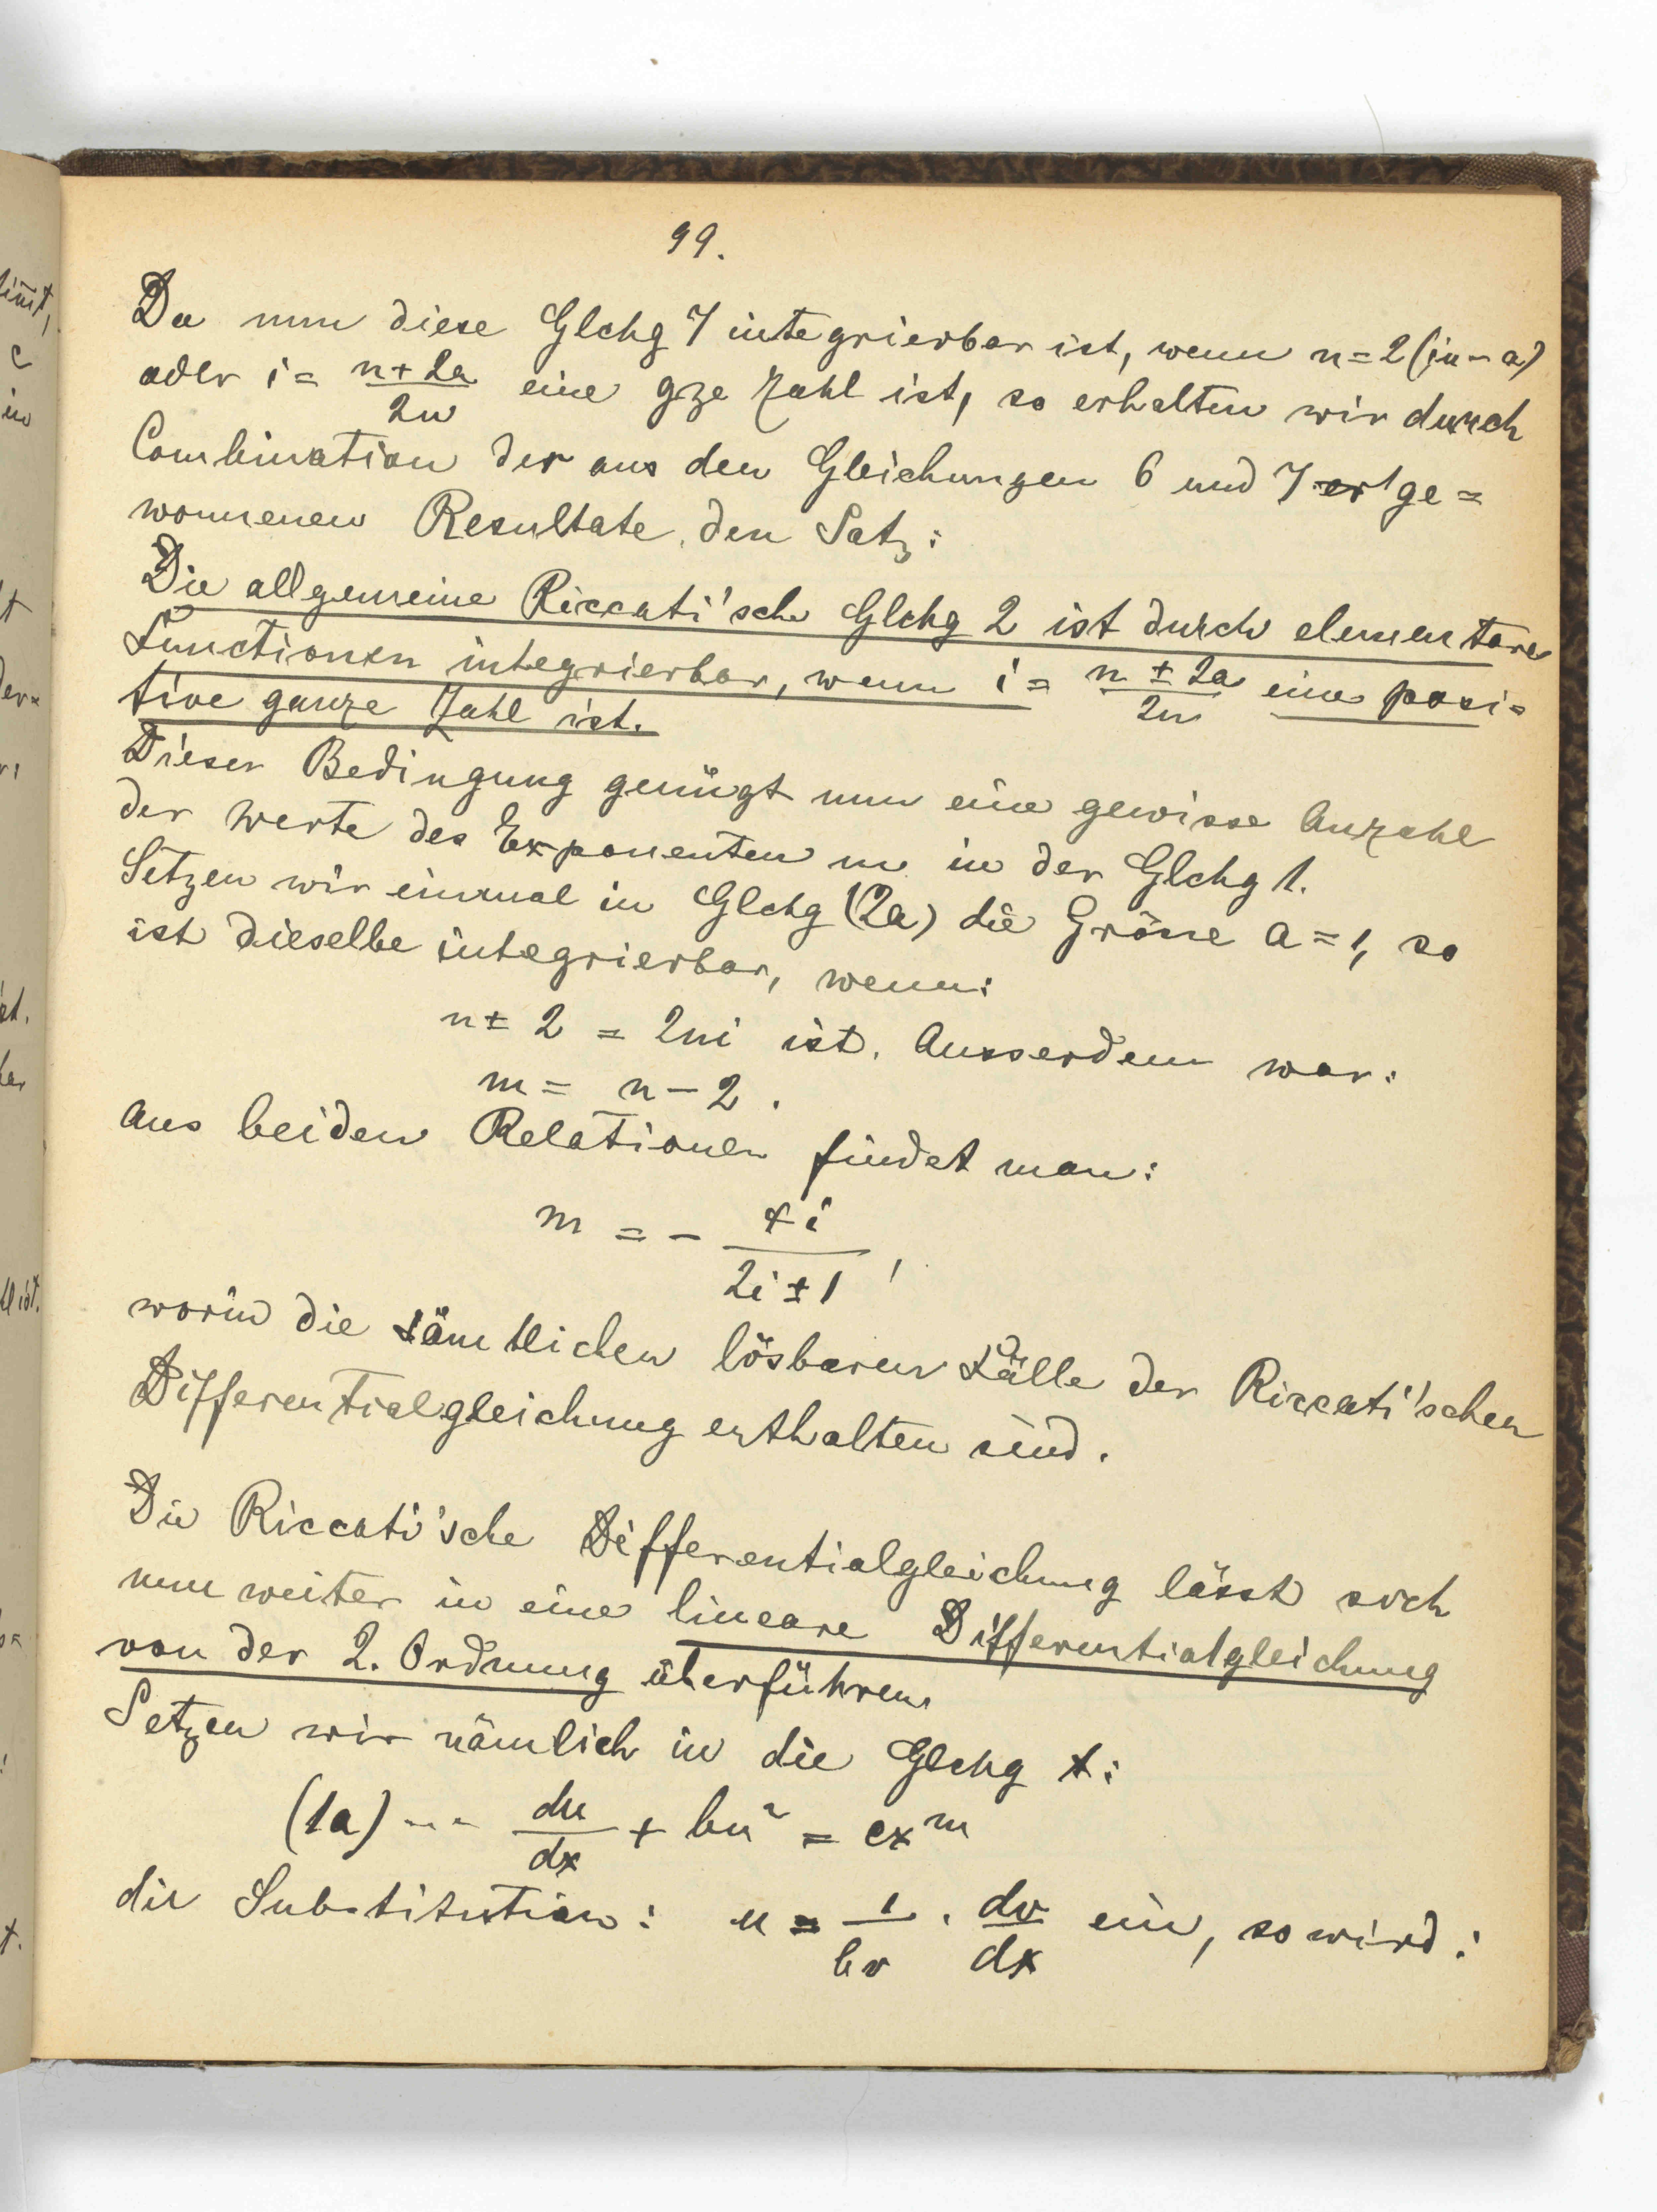 99.
Da nun diese Glchg 7 integrierbar ist, wenn n=2(in-a)
oder i = (n+2a)/(2n) eine gze Zahl ist, so erhalten wir durch
Combination der aus den Gleichungen 6 und 7 ge=
wonnenen Resultate, den Satz:
Die allgemeine Riccati'sche Glchg 2 ist durch elementare
Functionen integrierbar, wenn i = (n ± 2a)/(2n) eine posi=
tive ganze Zahl ist.
Dieser Bedingung genügt nun eine gewisse Anzahl
der Werte des Exponenten m in der Glchg 1.
Setzen wir einmal in Glchg (2a) die Grösse a = 1, so
ist dieselbe integrierbar, wenn:
n ± 2 = 2ni ist. Ausserdem war:
m = n - 2.
Aus beiden Relationen findet man:
m = - 4i/(2i ± 1),
worin die sämtlichen lösbaren Fälle der Riccati'schen
Differentialgleichung enthalten sind.
Die Riccati'sche Differentialgleichung lässt sich
nun weiter in eine lineare Differentialgleichung
von der 2. Ordnung überführen.
Setzen wir nämlich in die Glchg 1:
(1a) --- du/dx + bu² = cx^m
die Substitution: u = 1/(bv) · dv/dx ein, so wird: